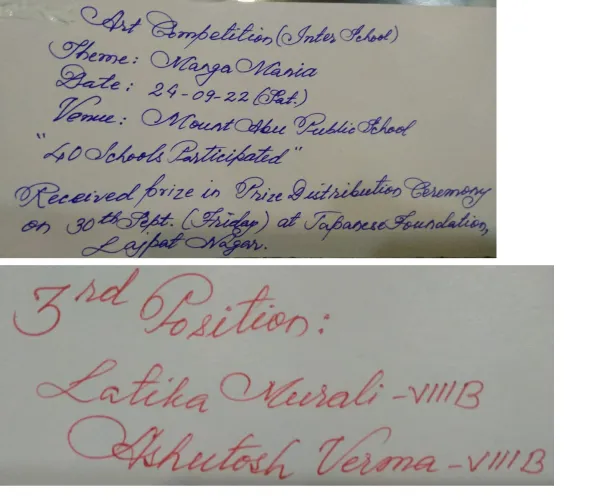 Art Competition (Inter School)
Theme: Manga Mania
Date: 24-09-22 (Sat.)
Venue: Mount Abu Public School
"40 Schools Participated"
Received prize in Prize Distribution Ceremony
on 30th Sept. (Friday) at Japanese Foundation,
Lajpat Nagar.
3rd Position:
Latika Murali - VIII B
Ashutosh Verma - VIII B